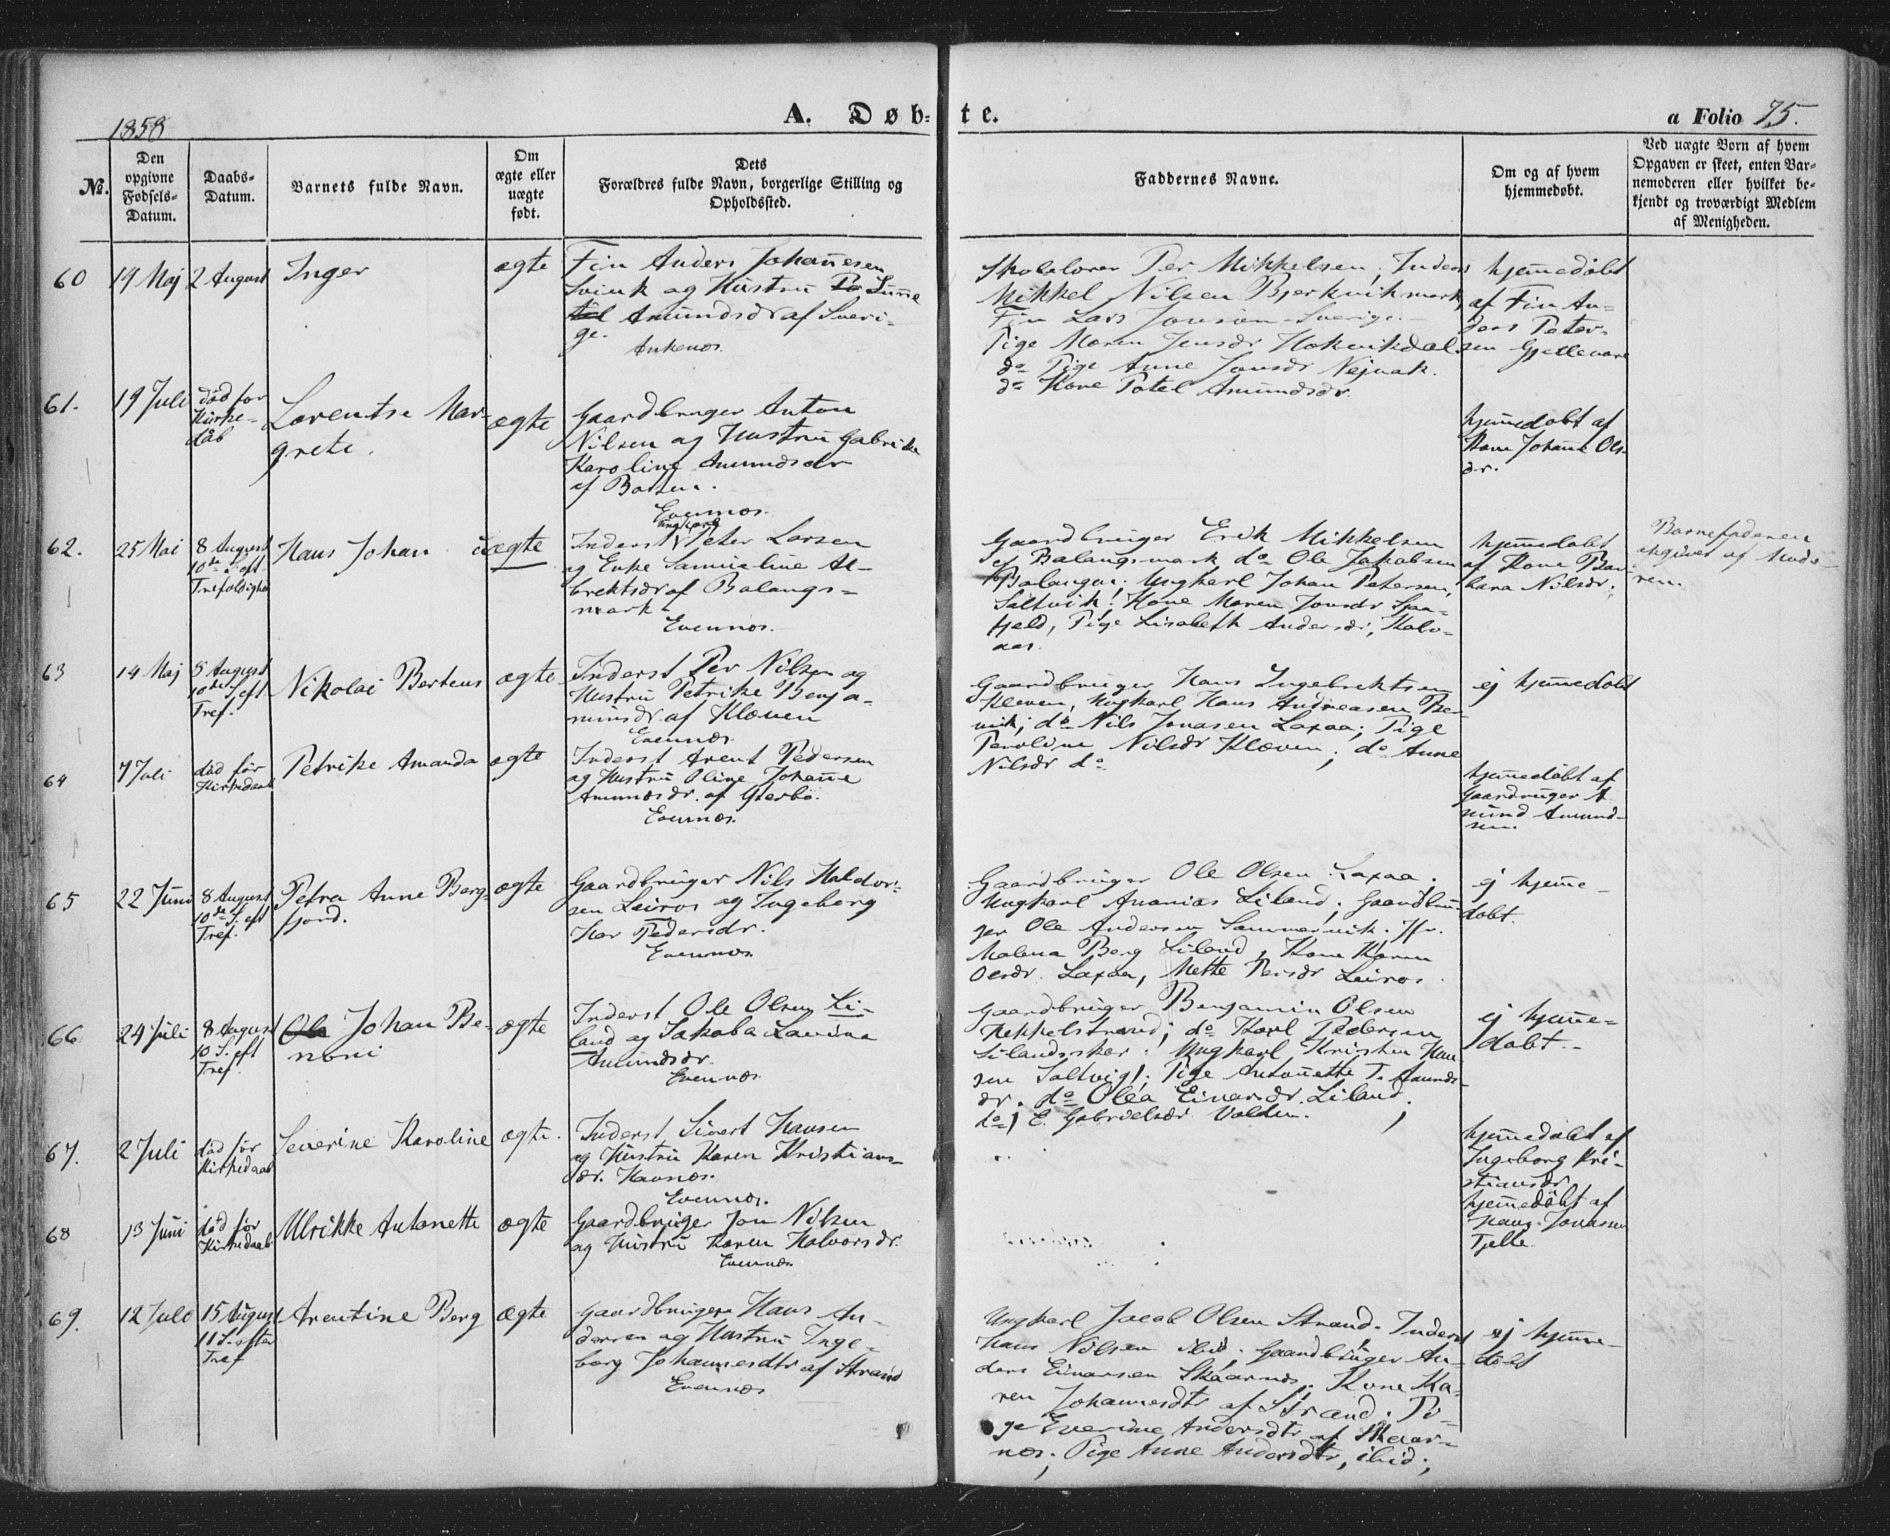 1858
A. Døb-
te.
a Folio 75.
No.
Den opgivne Fødsels-Datum.
Daabs-Datum.
Barnets fulde Navn.
Om ægte eller uægte født.
Dets Forældres fulde Navn, borgerlige Stilling og Opholdssted.
Faddernes Navne.
Om og af hvem hjemmedøbt.
Ved uægte Børn af hvem Opgaven er skeet, enten Barnemoderen eller hvilket bekjendt og troværdigt Medlem af Menigheden.
60
19 Maj
2 August
Inger
ægte
Fin Anders Johannesen
og Hustru Sunne
Amundsdr af Sveri-
ge.
Ankenes
Mikkel Nilsen Bjerkvikmark
Fin Lars Jonsen Sverige.
Pige Maren Jensdr
do Pige Anne Jonsdr
do Kone Amundsdr
hjemmedøbt
af Fin An-
ders Peter-
sen
61.
19 Juli
død for
Kirke-
dåb
Lorentse Mar-
grete.
ægte
Gaardbruger Anton
Nilsen og Hustru Gabrike
Karoline Amundsdr
Evennes.
hjemmedøbt af
Kone Johanne Ols-
dr.
62.
25 Mai
8 August
10de S. eft
Trefoldighed
Hans Johan
uægte
Inderst Ungkarl Peter Larsen
og Enke Samueline Al-
brektsdr af Balangs-
mark
Evennes.
Gaardbruger Erik Mikkelsen
Balangsmark do Ole Jakobsen
Balangen. Ungkarl Johan Petersen,
Saltvik. Kone Maren Jonsdr
Pige Lisabeth Andersdr,
hjemmedøbt
af Kone Bar-
bara Nilsdr.
Barnefaderen
opgivet af Mode-
ren
63
14 Maj
8 August
10de S. eft
Tref.
Nikolai Berteus
ægte
Inderst Per Nilsen og
Hustru Petrike Benja-
minsdr af Kleven
Evennes
Gaardbruger Hans Ingebrektsen
Kleven, Ungkarl Hans Andreasen
do Nils Jonasen Laxaa; Pige
Nilsdr Kleven; do Anne
Nilsdr do
ej hjemmedøbt
64
7 Juli
død før
Kirkedaab
Petrike Amanda
ægte
Inderst Arent Pedersen
og Hustru Oline Johanne
Amundsdr. af
Evennes.
hjemmedøbt af
Gaardbruger A-
mund Amund-
sen.
65
22 Juni
8 August
10de S. eft
Tref.
Petra Anne Berg-
fjord.
ægte
Gaardbruger Nils Haldor-
sen Leiros og Ingeborg
Pedersdr.
Evennes
Gaardbruger Ole Olsen Laxaa.
Ungkarl Ananias Liland; Gaardbru-
ger Ole Andersen Sommervik. Jfr.
Malena Berg Liland, Kone Karen
Olsdr. Laxaa, Mette Persdr Leiros.
ej hjemme-
døbt.
66
24 Juli
8 August
10 S. eft
Tref.
Ole Johan Be-
noni
ægte
Inderst Ole Olsen Li-
land og Jakoba Lamina
Amundsdr.
Evennes
Gaardbruger Benjamin Olsen
do Karl Pedersen
Ungkarl Kristen Han-
sen Saltvig; Pige Antonette T. Amunds-
dr. do Olea Einarsdr Liland.
do, E. Gabrielsdr Volden.
ej hjemme-
døbt.
67.
2 Juli
død før
Kirkedaab
Severine Karoline
ægte.
Inderst Sivert Hansen
og Hustru Karen Kristians-
dr.
Evennes.
hjemmedøbt af
Ingeborg Kri-
stiansdr
68
13 Juni
død før
Kirkedaab
Ulrikke Antonette
ægte
Gaardbruger Jon Nilsen
og Hustru Karen Halvorsdr.
Evennes
hjemmedøbt af
Jonasen
69.
12 Juli
15 August
11 S. efter
Tref
Arentine Berg
ægte
Gaardbruger Hans An-
dersen og Hustru Inge-
borg Johannesdtr af Strand
Evennes
Ungkarl Jacob Olsen Strand. Inderst
Hans Nilsen ibid. Gaardbruger An-
ders Einarsen Skaarnes. Kone Ka-
ren Johannesdtr af Strand. Pi-
ge Everine Andersdtr af Skaar-
nes. Pige Anne Andersdtr, ibid;
ej hjemme-
døbt